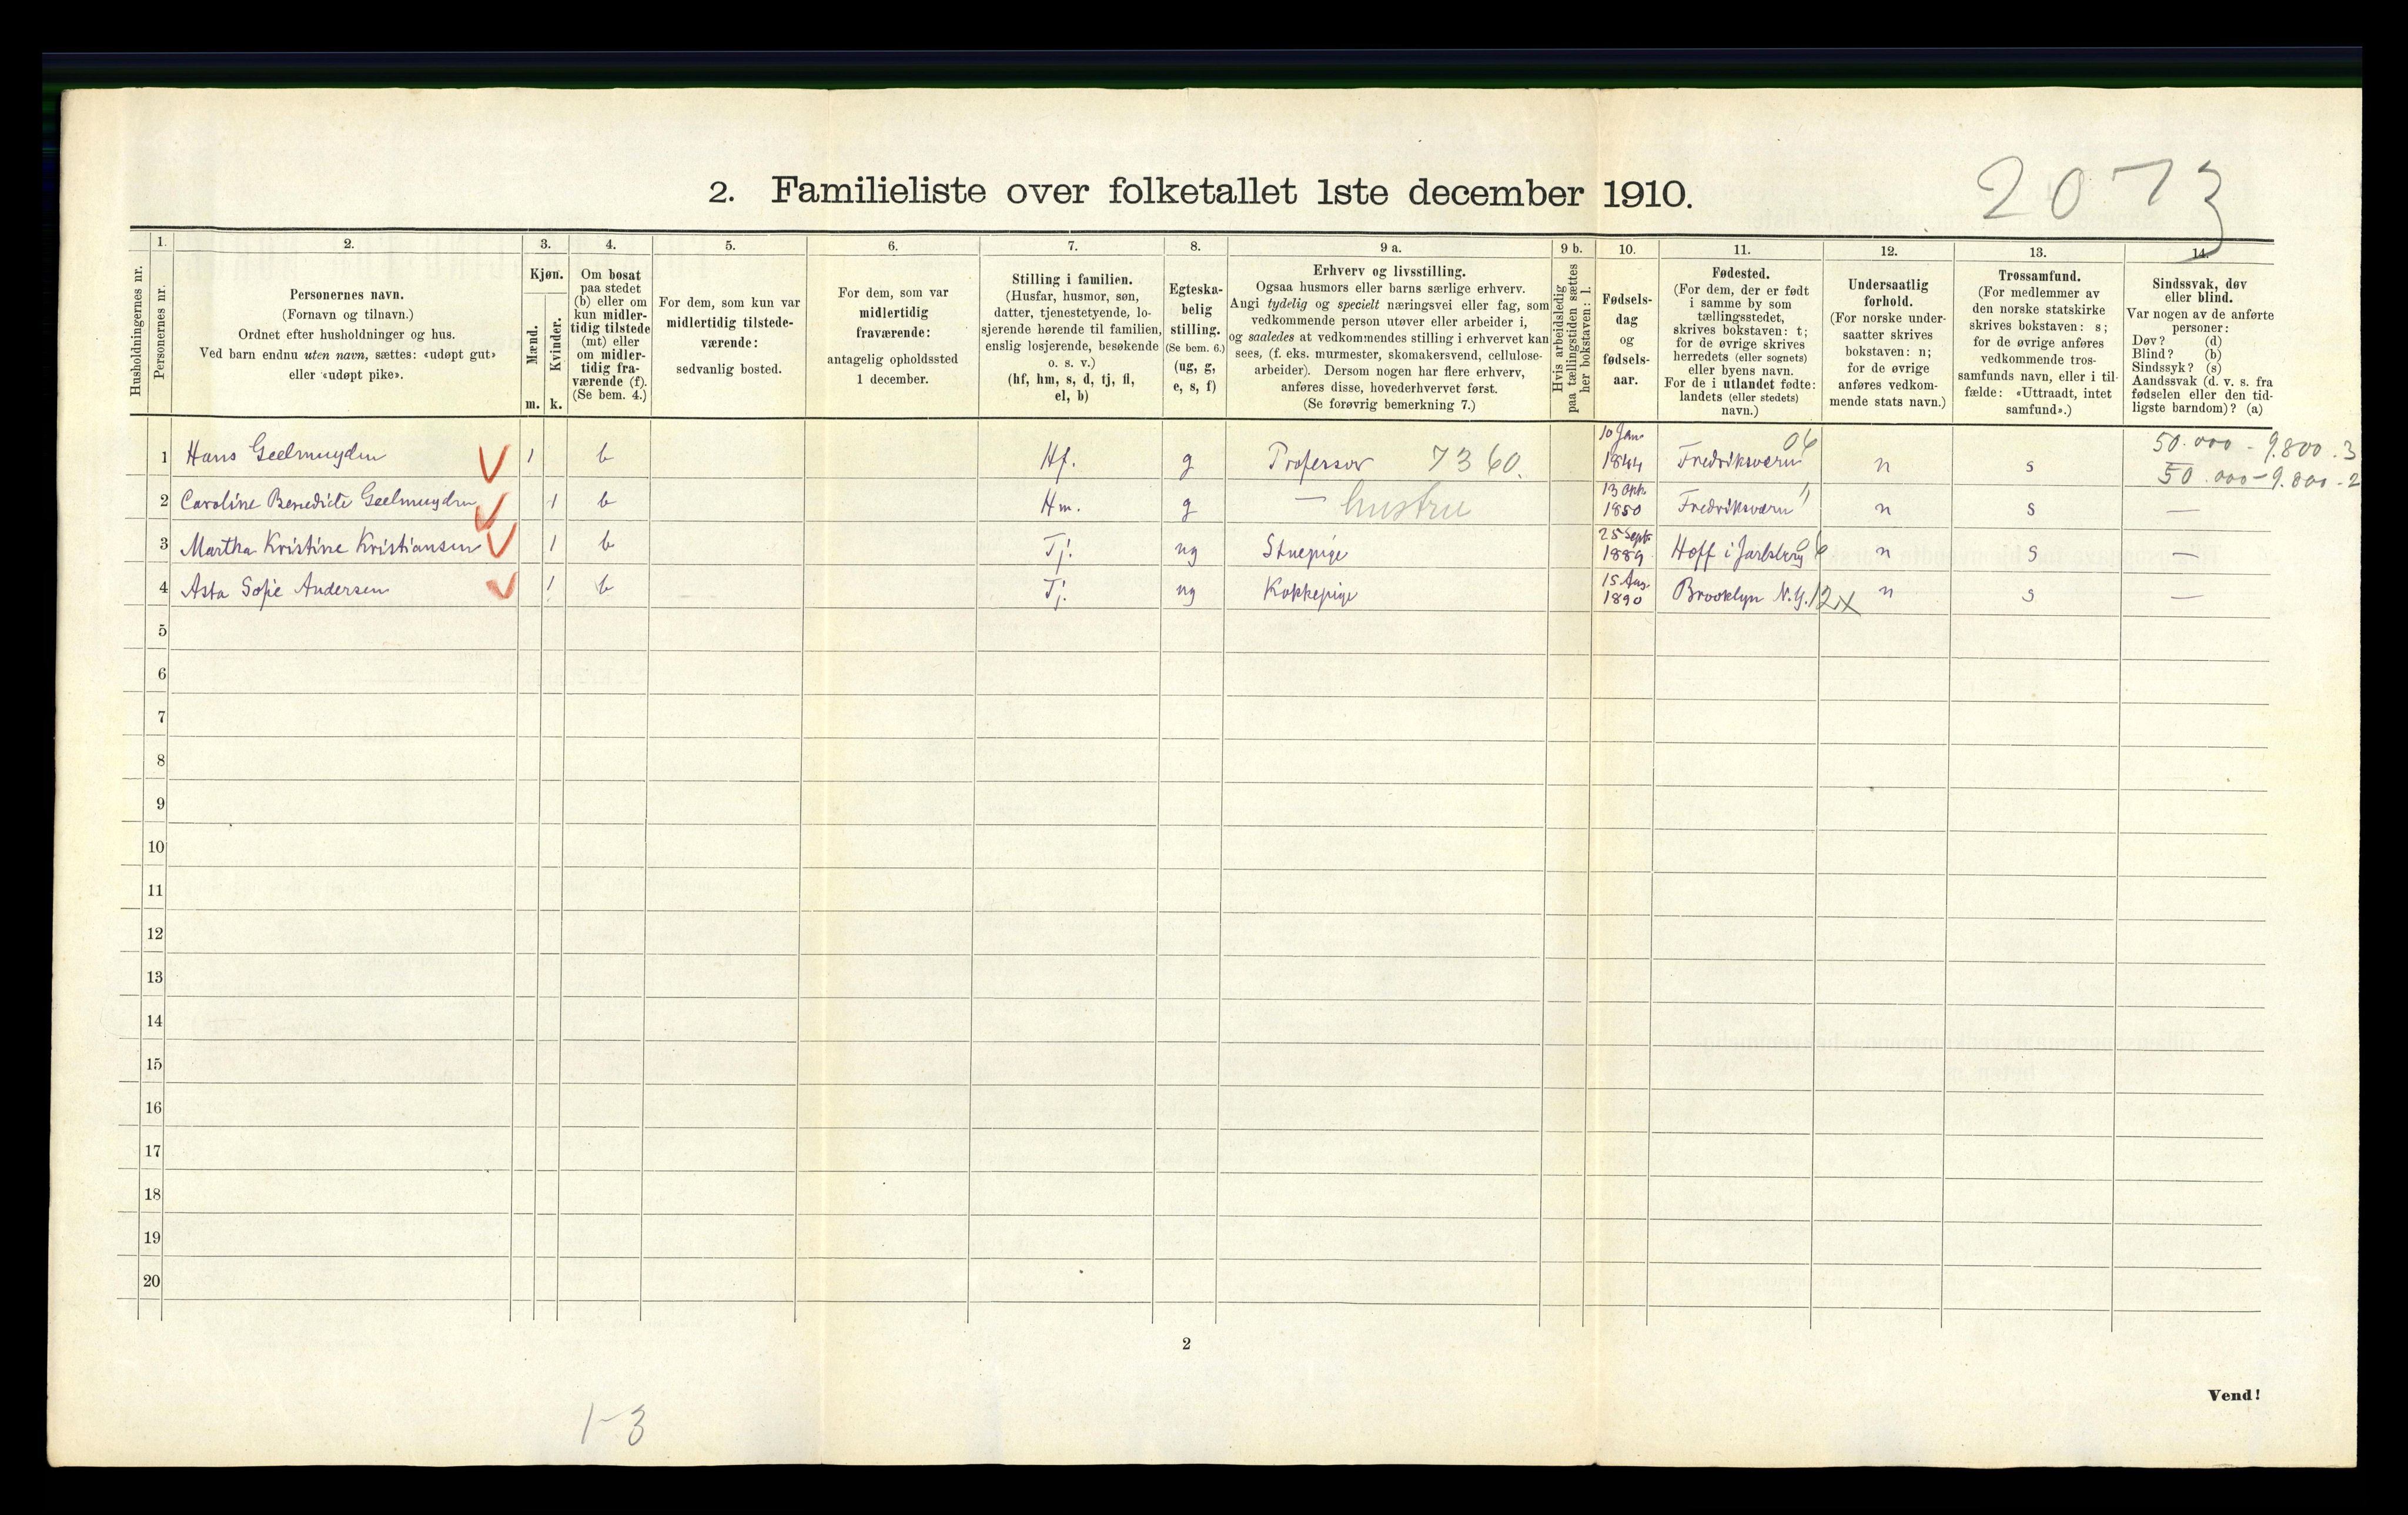 2073
2. Familieliste over folketallet 1ste december 1910.
Husholdningernes nr.
1.
Personernes nr.
2.
Personernes navn.
(Fornavn og tilnavn.)
Ordnet efter husholdninger og hus.
Ved barn endnu uten navn, sættes: «udøpt gut»
eller «udøpt pike».
3.
Kjøn.
Mænd.
Kvinder.
m. k.
4.
Om bosat
paa stedet
(b) eller om
kun midler-
tidig tilstede
(mt) eller
om midler-
tidig fra-
værende (f).
(Se bem. 4.)
5.
For dem, som kun var
midlertidig tilstede-
værende:
sedvanlig bosted.
6.
For dem, som var
midlertidig
fraværende:
antagelig opholdssted
1 december.
7.
Stilling i familien.
(Husfar, husmor, søn,
datter, tjenestetyende, lo-
sjerende hørende til familien,
enslig losjerende, besøkende
o. s. v.)
(hf, hm, s, d, tj, fl,
el, b)
8.
Egteska-
belig
stilling.
(Se bem. 6.)
(ug, g,
e, s, f)
9 a.
Erhverv og livsstilling.
Ogsaa husmors eller barns særlige erhverv.
Angi tydelig og specielt næringsvei eller fag, som
vedkommende person utøver eller arbeider i,
og saaledes at vedkommendes stilling i erhvervet kan
sees, (f. eks. murmester, skomakersvend, cellulose-
arbeider). Dersom nogen har flere erhverv,
anføres disse, hovederhvervet først.
(Se forøvrig bemerkning 7.)
9 b.
Hvis arbeidsledig
paa tællingstiden sættes
her bokstaven: l.
10.
Fødsels-
dag
og
fødsels-
aar.
11.
Fødested.
(For dem, der er født
i samme by som
tællingsstedet,
skrives bokstaven: t;
for de øvrige skrives
herredets (eller sognets)
eller byens navn.
For de i utlandet fødte:
landets (eller stedets)
navn.)
12.
Undersaatlig
forhold.
(For norske under-
saatter skrives
bokstaven: n;
for de øvrige
anføres vedkom-
mende stats navn.)
13.
Trossamfund.
(For medlemmer av
den norske statskirke
skrives bokstaven: s;
for de øvrige anføres
vedkommende tros-
samfunds navn, eller i til-
fælde: «Uttraadt, intet
samfund».)
14.
Sindssvak, døv
eller blind.
Var nogen av de anførte
personer:
Døv? (d)
Blind? (b)
Sindssyk? (s)
Aandssvak (d. v. s. fra
fødselen eller den tid-
ligste barndom)? (a)
1 Hans Geelmuyden 1 b Hf. g Professor 7360. 10 Jan. 1844 Fredriksværn 06 n s 50.000 - 9.800 . 3
50.000 - 9.800 - 2
2 Caroline Benedicte Geelmuyden 1 b Hm. g — hustru 13 Okt. 1850 Fredriksværn " n s —
3 Martha Kristine Kristiansen 1 b Tj. ug Stuepige 25 Sept. 1889 Hoff i Jarlsberg 06 n s —
4 Asta Sofie Andersen 1 b Tj. ug Kokkepige 15 Aug. 1890 Brooklyn N.Y. 12x n s —
5
6
7
8
9
10
11
12
13
14
15
16
17
18
19
20
2
Vend!
1-3